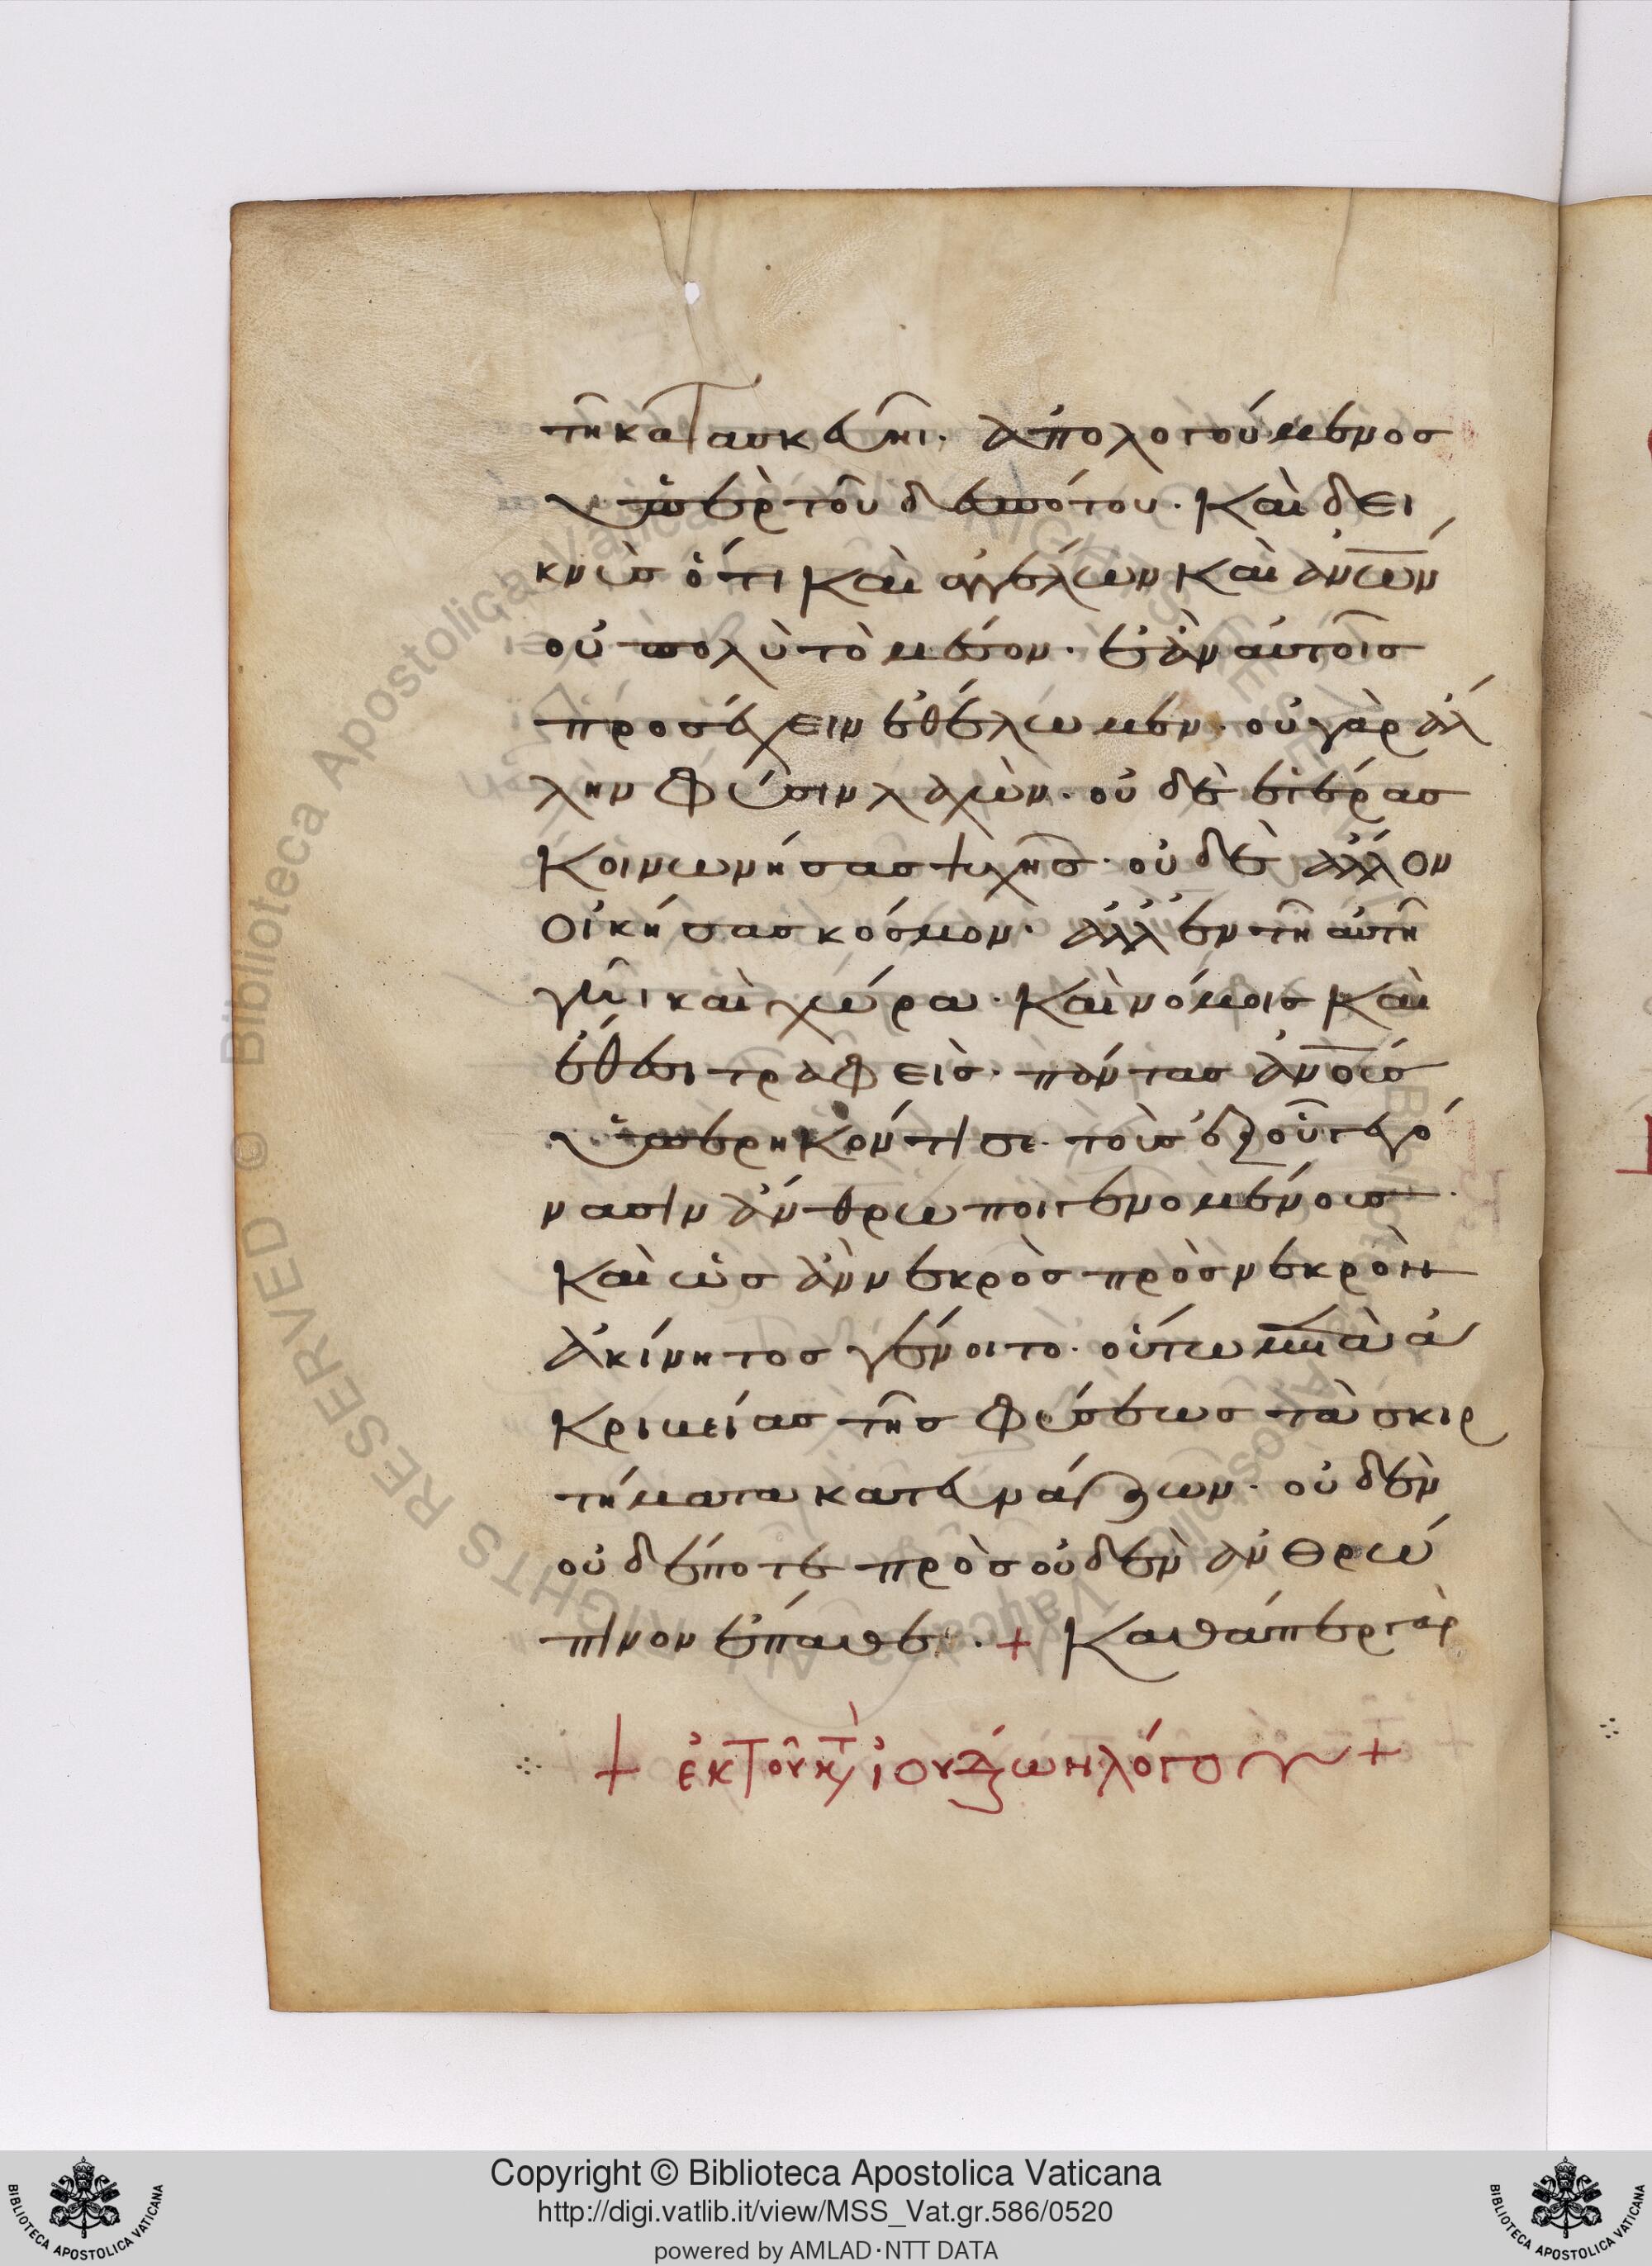 τῆ κατασκευῆι. ἀπολογούμενος
ὑπὲρ τοῦ δεσπότου. Καὶ δει
κνὺσ ὅτι Καὶ ἀγγέλων Καὶ ἀν̅ω̅ν
οὐ πολὺ τὸ μέσον. ἐὰν αὐτοῖσ
προσέχειν ἐθέλωμεν. οὐ γὰρ ἄλ
λην φύσιν λαχὼν. οὐδὲ ἑτέρασ
Κοινωνήσασ ψυχῆσ. οὐδὲ ἄλλον
οἰκήσασ κόσμον. ἀλλ' ἐν τῆ αὐτῆ
γῆι καὶ χώρα. Καὶ νόμοισ Καὶ
ἔθεσι τραφεὶσ. πάντασ ἀν̅ο̅υ̅σ
ὑπερηκόντισε. τοὺσ ἐξ οὗ γεγό
νασιν ἄνθρωποι γενομένουσ.
Καὶ ὡσ ἂν νεκρὸσ πρὸσ νεκρὸν
ἀκίνητοσ γένοιτο. οὕτω μετὰ ἀ
Κριβείασ τῆσ φύσεωσ τὰ σκιρ
τήματα κατευνάζων. οὐδὲν
οὐδέποτε πρὸσ οὐδὲν ἀνθρώ
πινον ἔπαθε. + Καθάπερ γὰρ
+ ἐκ τοῦ κατὰ ἰουδαίων λόγου +
Copyright © Biblioteca Apostolica Vaticana
http://digi.vatlib.it/view/MSS_Vat.gr.586/0520
powered by AMLAD·NTT DATA
BIBLIOTECA APOSTOLICA VATICANA
BIBLIOTECA APOSTOLICA VATICANA
Biblioteca Apostolica Vaticana
RIGHTS RESERVED ©